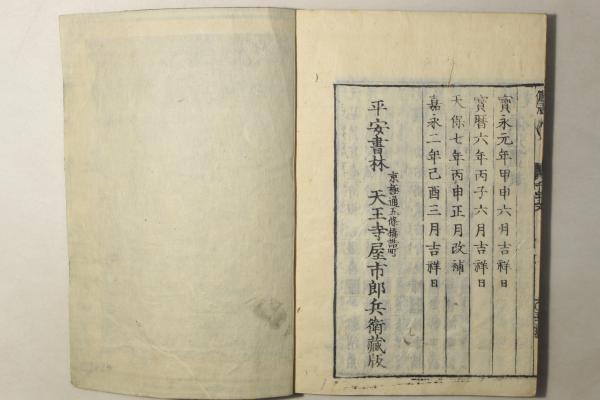 寳永元年甲申六月吉祥日
寳暦六年丙子六月吉祥日
天保七年丙申正月改補
嘉永二年己酉三月吉祥日
京極通五條橋詰町
平安書林 天王寺屋市郎兵衛藏版